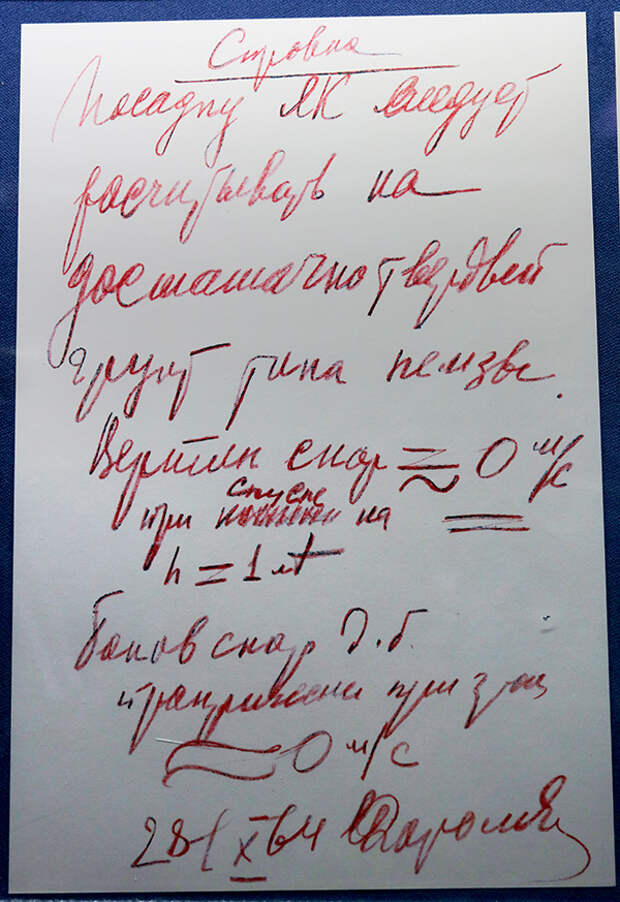 Справка
Посадку ЛК следует
расчитывать на
достаточно твердый
грунт типа пемзы.
Вертик скор ≈ 0 м/с
при спуске на
h = 1 м
Боков скор д.б.
при
≈ 0 м/с
28/X 64 СКоролев